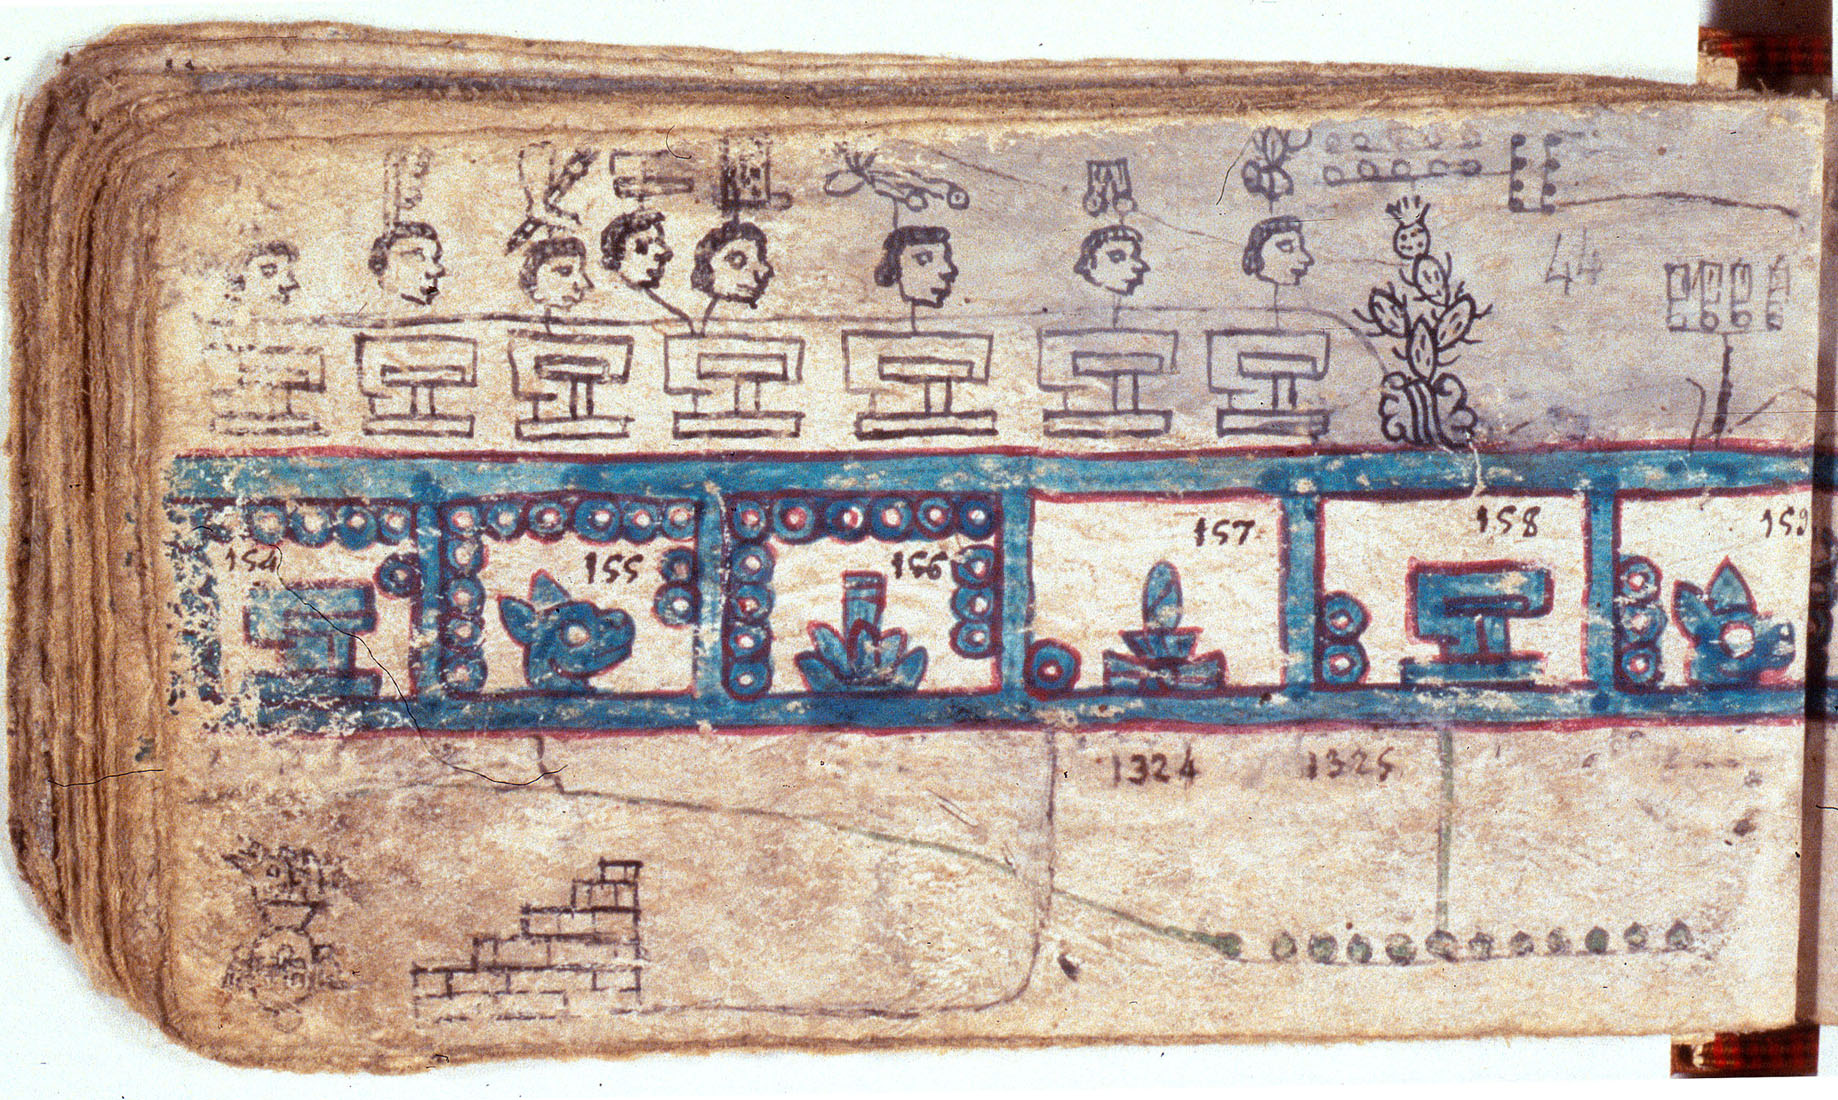 44
154
155
156
157
158
159
1324
1325